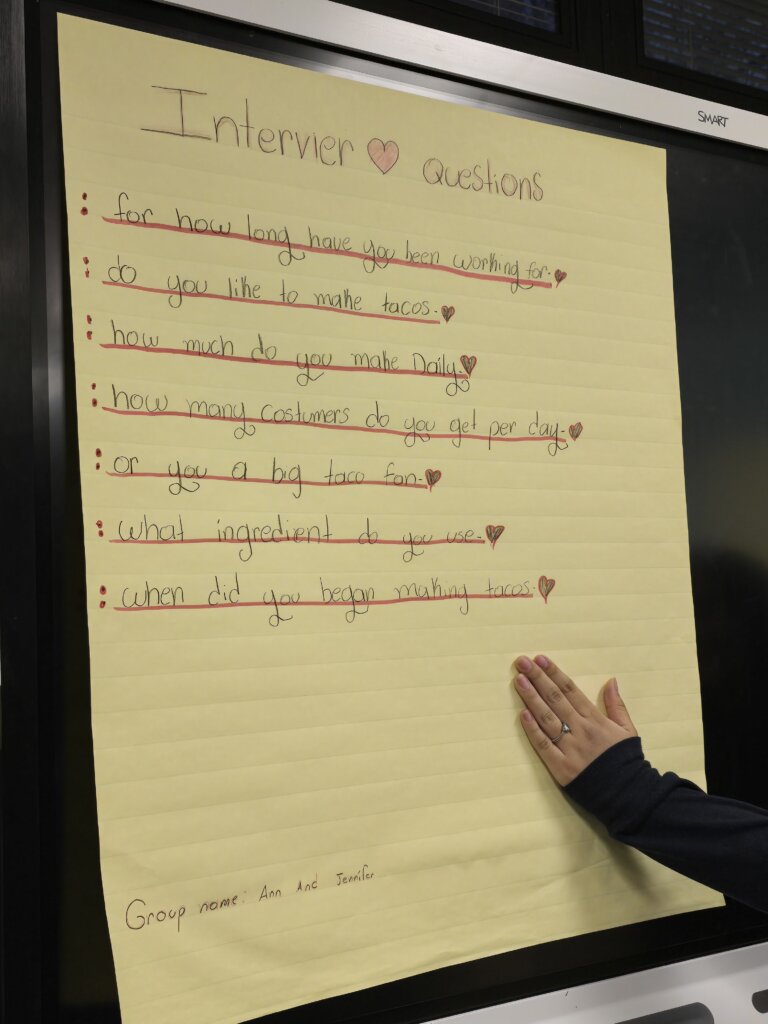 SMART
Intervier questions
: for how long have you been working for.
: do you like to make tacos.
: how much do you make Daily.
: how many costumers do you get per day.
: or you a big taco fan.
: what ingredient do you use.
: when did you began making tacos.
Group name: Ann And Jennifer